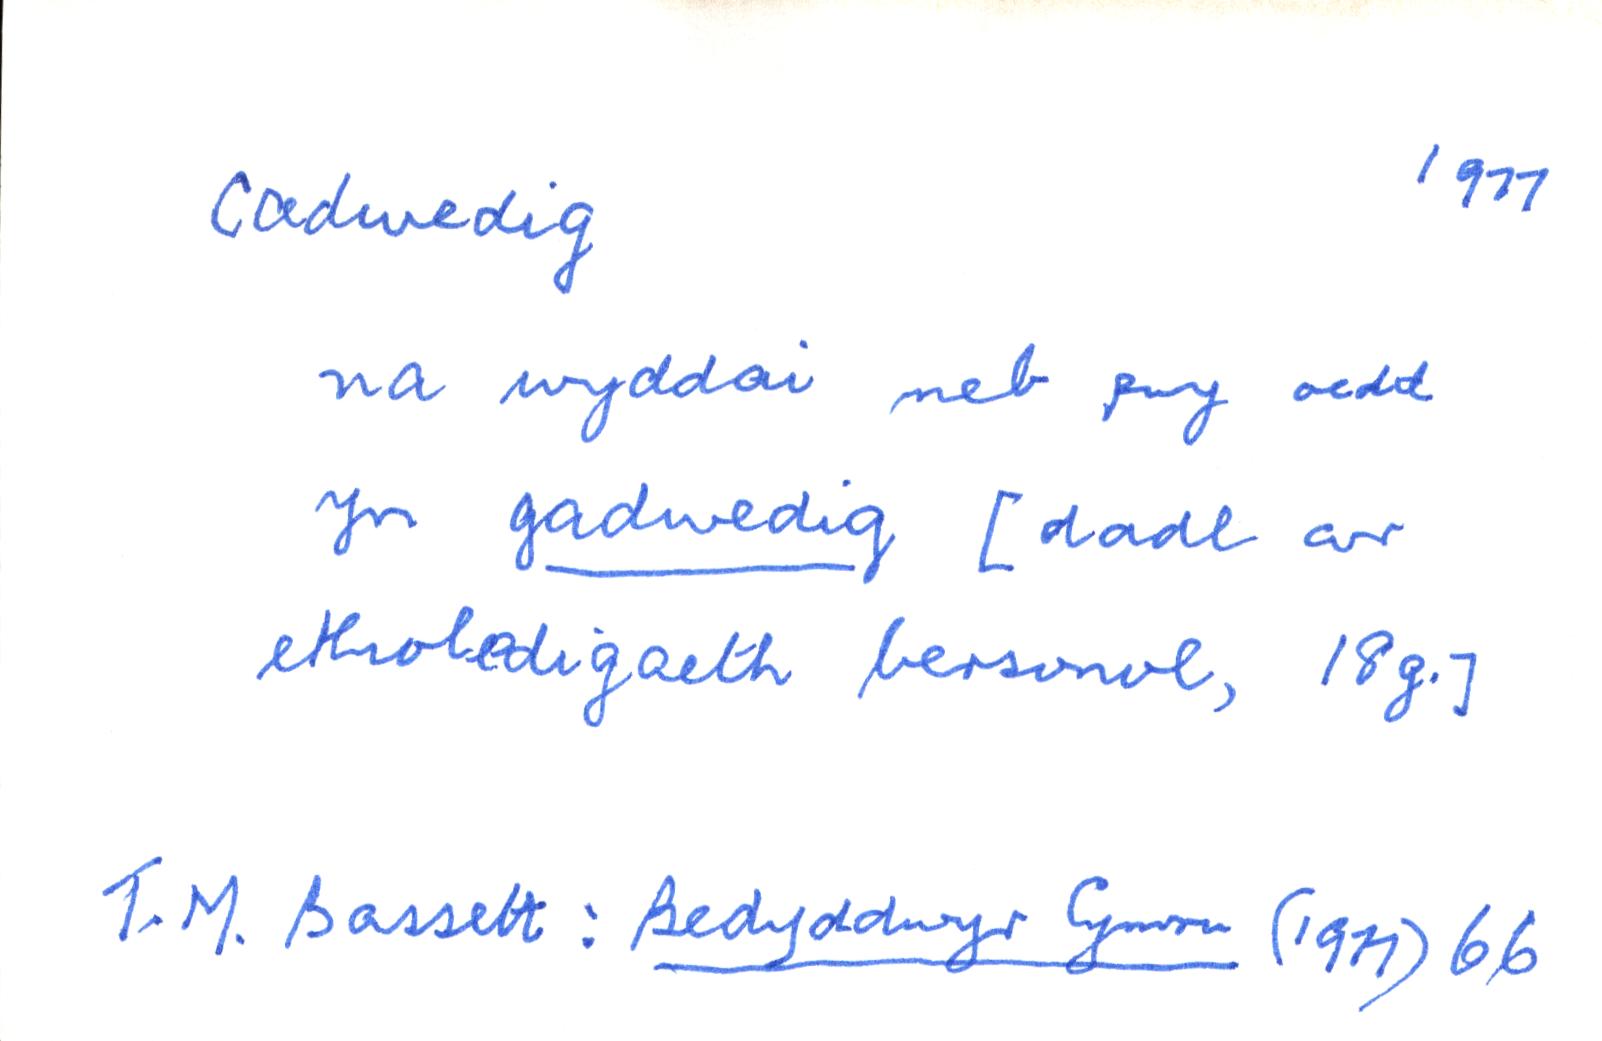 Cadwedig 1977
na wyddai neb pwy oedd
yn gadwedig [dadl ar
etholedigaeth bersonol, 18g.]
T. M. Bassett: Bedyddwyr Cymru (1977) 66